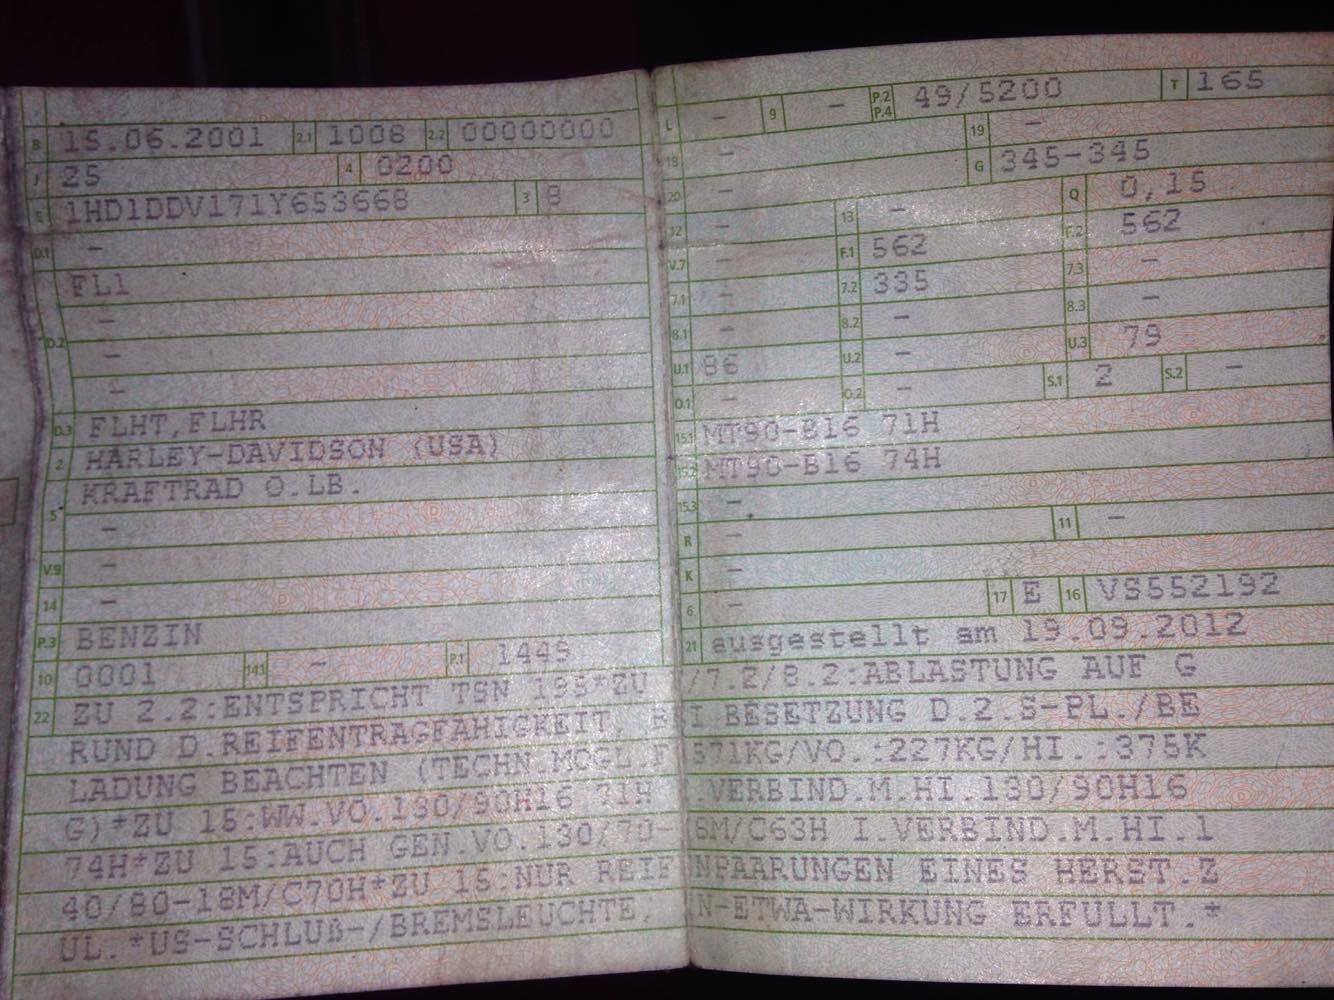 B 15.06.2001 2.1 1008 2.2 00000000
J 25 4 0200
E 1HD1DDV171Y653668 3 8
D.1 -
FL1
-
D.2 -
-
D.3 FLHT,FLHR
2 HARLEY-DAVIDSON (USA)
5 KRAFTRAD O.LB.
-
V.9 -
14 -
P.3 BENZIN
10 0001 14.1 - P.1 1449
L - 9 - P.2 P.4 49/5200 T 165
18 - 19 -
20 - G 345-345
12 - 13 - Q 0,15
V.7 - F.1 562 F.2 562
7.1 - 7.2 335 7.3 -
8.1 - 8.2 - 8.3 -
U.1 86 U.2 - U.3 79
O.1 - O.2 - S.1 2 S.2 -
15.1 MT90-B16 71H
15.2 MT90-B16 74H
15.3 -
R - 11 -
K -
6 - 17 E 16 VS552192
21 ausgestellt am 19.09.2012
22 ZU 2.2:ENTSPRICHT TSN 199*ZU /7.2/8.2:ABLASTUNG AUF G
RUND D.REIFENTRAGFAHIGKEIT, BEI BESETZUNG D.2.S-PL./BE
LADUNG BEACHTEN (TECHN.MOGL.F 571KG/VO.:227KG/HI.:375K
G)*ZU 15:WW.VO.130/90H16 71H I.VERBIND.M.HI.130/90H16
74H*ZU 15:AUCH GEN.VO.130/70-18M/C63H I.VERBIND.M.HI.1
40/80-18M/C70H*ZU 15:NUR REIFENPAARUNGEN EINES HERST.Z
UL.*US-SCHLUß-/BREMSLEUCHTE, IN-ETWA-WIRKUNG ERFULLT.*